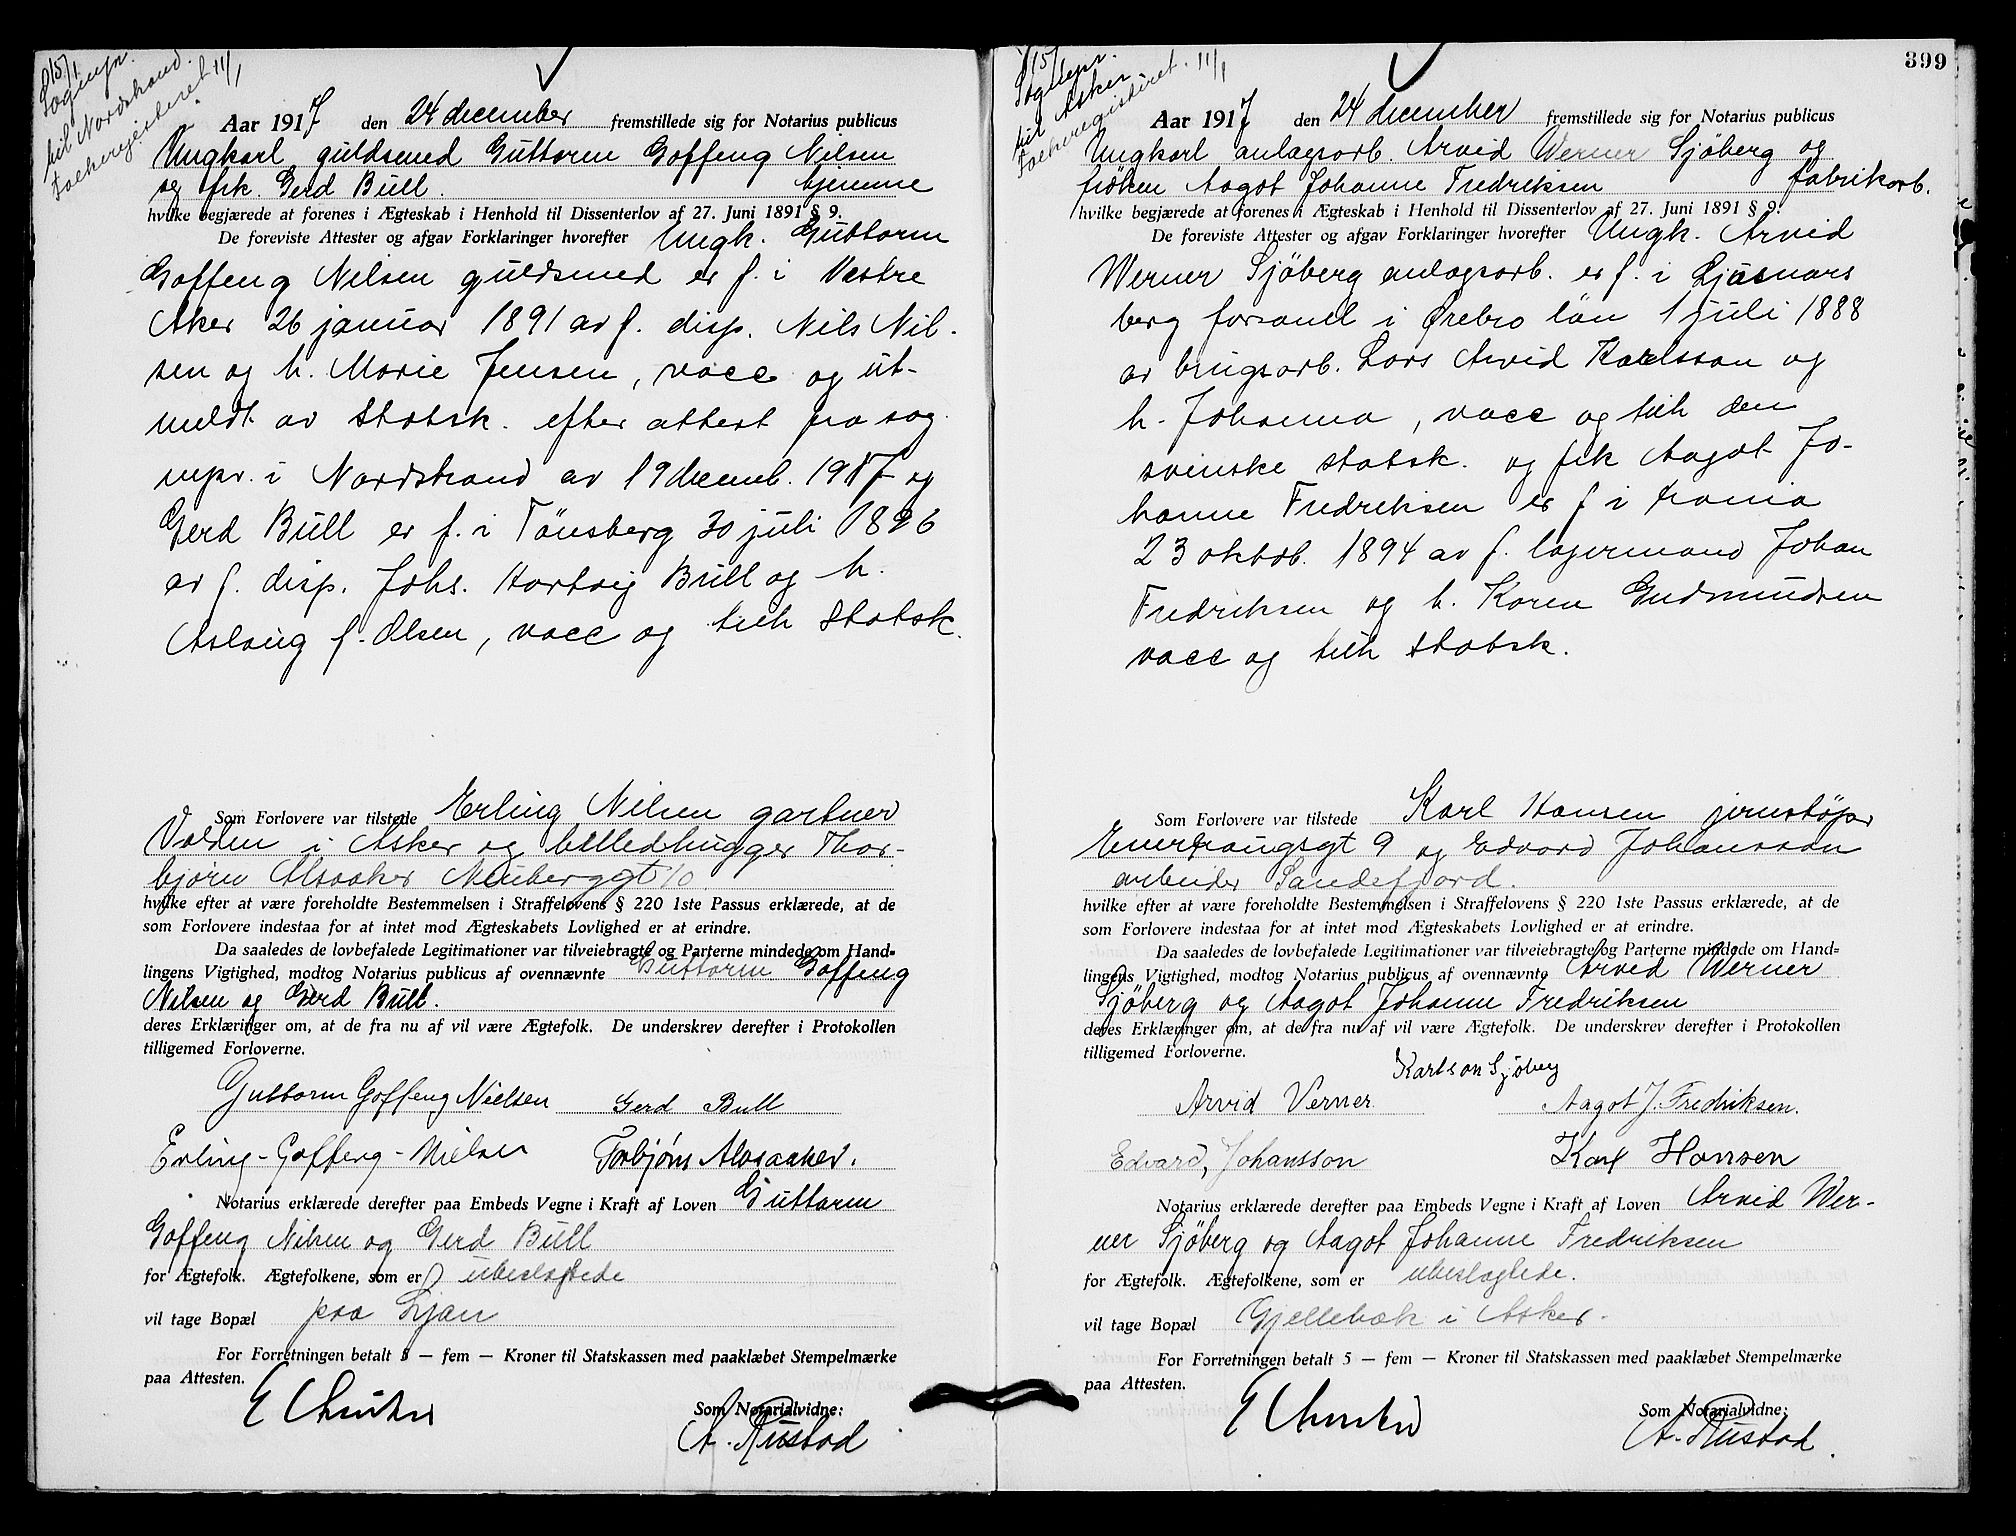 15/1
Sognepr.
til Nordstrand.
Folkeregisteret 11/1
Aar 1917 den 24 december fremstillede sig for Notarius publicus
Ungkarl guldsmed Guttorm Goffeng Nilsen
og frk. Gerd Bull. hjemme
hvilke begjærede at forenes i Ægteskab i Henhold til Dissenterlov af 27. Juni 1891 § 9.
De foreviste Attester og afgav Forklaringer hvorefter Ungk. Guttorm
Goffeng Nilsen guldsmed er f. i Vestre
Aker 26 januar 1891 av f. disp. Nils Nil-
sen og h. Marie Jensen, vacc og ut-
meldt av Statsk. efter attest fra sog
nepr. i Nordstrand av 19 decemb. 1917 og
Gerd Bull er f. i Tönsberg 30 juli 1896
av f. disp. Johs. Hartvig Bull og h.
Aslaug f. Olsen, vacc og tilh Statsk.
Som Forlovere var tilstede Erling Nilsen gartner
Valden i Asker og billedhugger Thor-
björn Alvsaker Neuberggt 10
hvilke efter at være foreholdte Bestemmelsen i Straffelovens § 220 1ste Passus erklærede, at de
som Forlovere indestaa for at intet mod Ægteskabets Lovlighed er at erindre.
Da saaledes de lovbefalede Legitimationer var tilveiebragte og Parterne mindede om Hand-
lingens Vigtighed, modtog Notarius publicus af ovennævnte Guttorm Goffeng
Nilsen og Gerd Bull.
deres Erklæringer om, at de fra nu af vil være Ægtefolk. De underskrev derefter i Protokollen
tilligemed Forloverne.
Guttorm Goffeng Nielsen Gerd Bull
Erling-Goffeng-Nielsen Torbjørn Alvsaaker.
Notarius erklærede derefter paa Embeds Vegne i Kraft af Loven Guttorm
Goffeng Nilsen og Gerd Bull
for Ægtefolk. Ægtefolkene, som er ubeslægtede
vil tage Bopæl paa Ljan
For Forretningen betalt 5 — fem — Kroner til Statskassen med paaklæbet Stempelmærke
paa Attesten.
Som Notarialvidne:
A. Rustad
399
15/1
Sognepr.
til Asker
Folkeregisteret. 11/1
Aar 1917 den 24 december fremstillede sig for Notarius publicus
Ungkarl anlægsarb. Arvid Werner Sjöberg og
fröken Aagot Johanne Fredriksen fabrikarb.
hvilke begjærede at forenes i Ægteskab i Henhold til Dissenterlov af 27. Juni 1891 § 9.
De foreviste Attester og afgav Forklaringer hvorefter Ungk. Arvid
Werner Sjöberg anlægsarb. er f. i Ljusnars
berg forsaml i Ørebro län 1 juli 1888
av brugsarb. Lars Arvid Karlsson og
h. Johanna, vacc og tilh den
svenske statsk. og frk Aagot Jo-
hanne Fredriksen er f i
23 oktob. 1894 av f. lagermand Johan
Fredriksen og h. Karen Gudmundsen
vacc og tilh Statsk.
Som Forlovere var tilstede Karl Hansen jernstöper
Enerhaugsgt 9 og Edvard Johansson
arbeider Sandefjord.
hvilke efter at være foreholdte Bestemmelsen i Straffelovens § 220 1ste Passus erklærede, at de
som Forlovere indestaa for at intet mod Ægteskabets Lovlighed er at erindre.
Da saaledes de lovbefalede Legitimationer var tilveiebragte og Parterne mindede om Hand-
lingens Vigtighed, modtog Notarius publicus af ovennævnte Arvid Werner
Sjöberg og Aagot Johanne Fredriksen
deres Erklæringer om, at de fra nu af vil være Ægtefolk. De underskrev derefter i Protokollen
tilligemed Forloverne.
Karlson Sjöberg
Arvid Verner Aagot J. Fredriksen.
Edvard, Johansson Karl Hansen
Notarius erklærede derefter paa Embeds Vegne i Kraft af Loven Arvid Wer-
ner Sjöberg og Aagot Johanne Fredriksen
for Ægtefolk. Ægtefolkene, som er ubeslægtede.
vil tage Bopæl Gjellebæk i Asker.
For Forretningen betalt 5 — fem — Kroner til Statskassen med paaklæbet Stempelmærke
paa Attesten.
Som Notarialvidne:
A. Rustad.